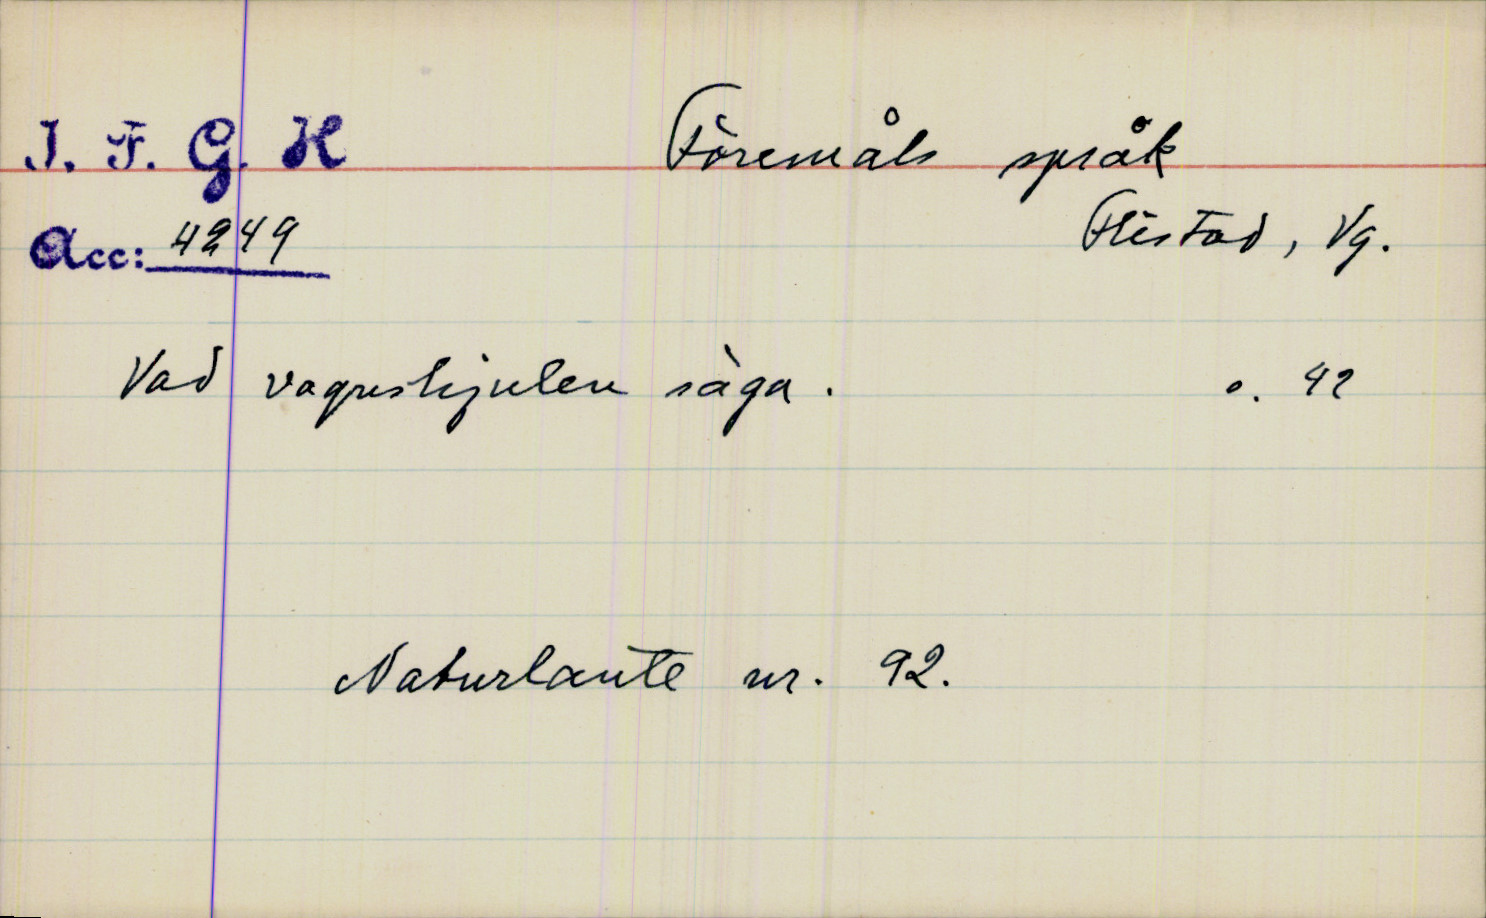 I. F. G. H
Föremåls språk
Acc: 4249
Flistad, Vg.
Vad vagnshjulen säga. s. 42
Naturlaute nr. 92.